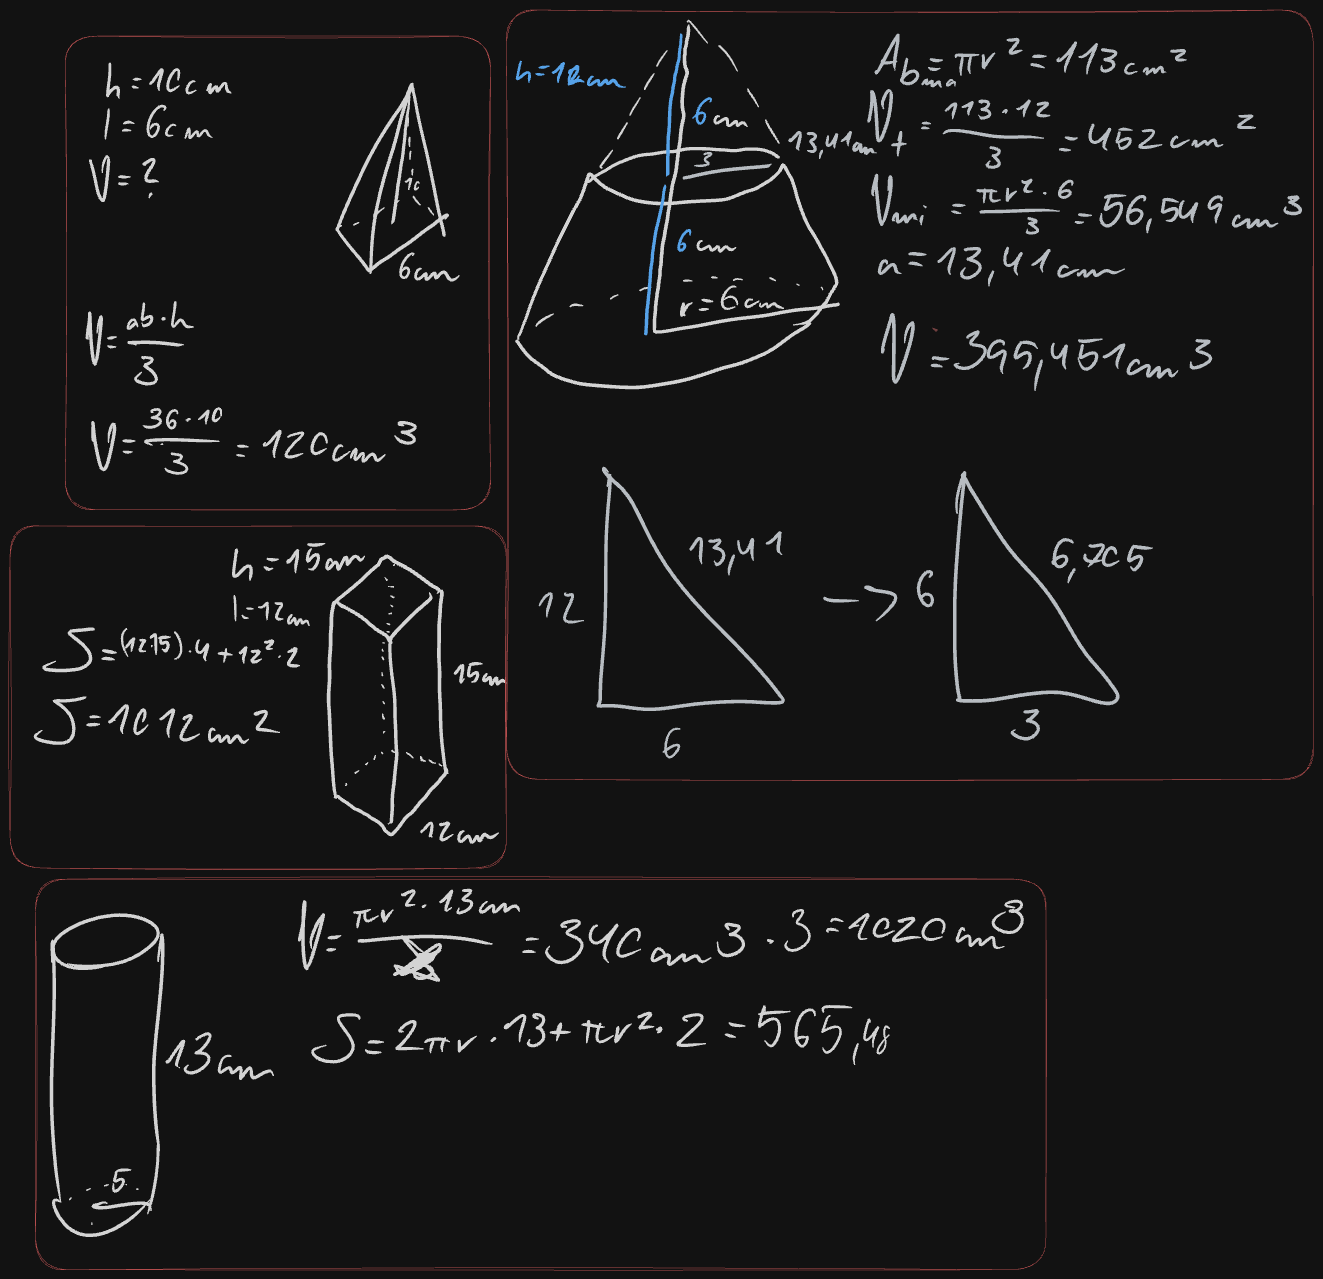 h=10cm
l=6cm
V=?
10
6cm
V=ab·h/3
V=36·10/3=120cm³
h=12cm
6cm
3
13,41cm
6cm
r=6cm
A_bma=πr²=113cm²
V_t=113·12/3=452cm²
V_mi=πr²·6/3=56,549cm³
a=13,41cm
V=395,451cm³
12
13,41
6
→
6
6,705
3
h=15cm
l=12cm
S=(12·15)·4+12²·2
S=1012cm²
15cm
12cm
V=πr²·13cm=340cm³·3=1020cm³
S=2πr·13+πr²·2=565,48
13cm
5